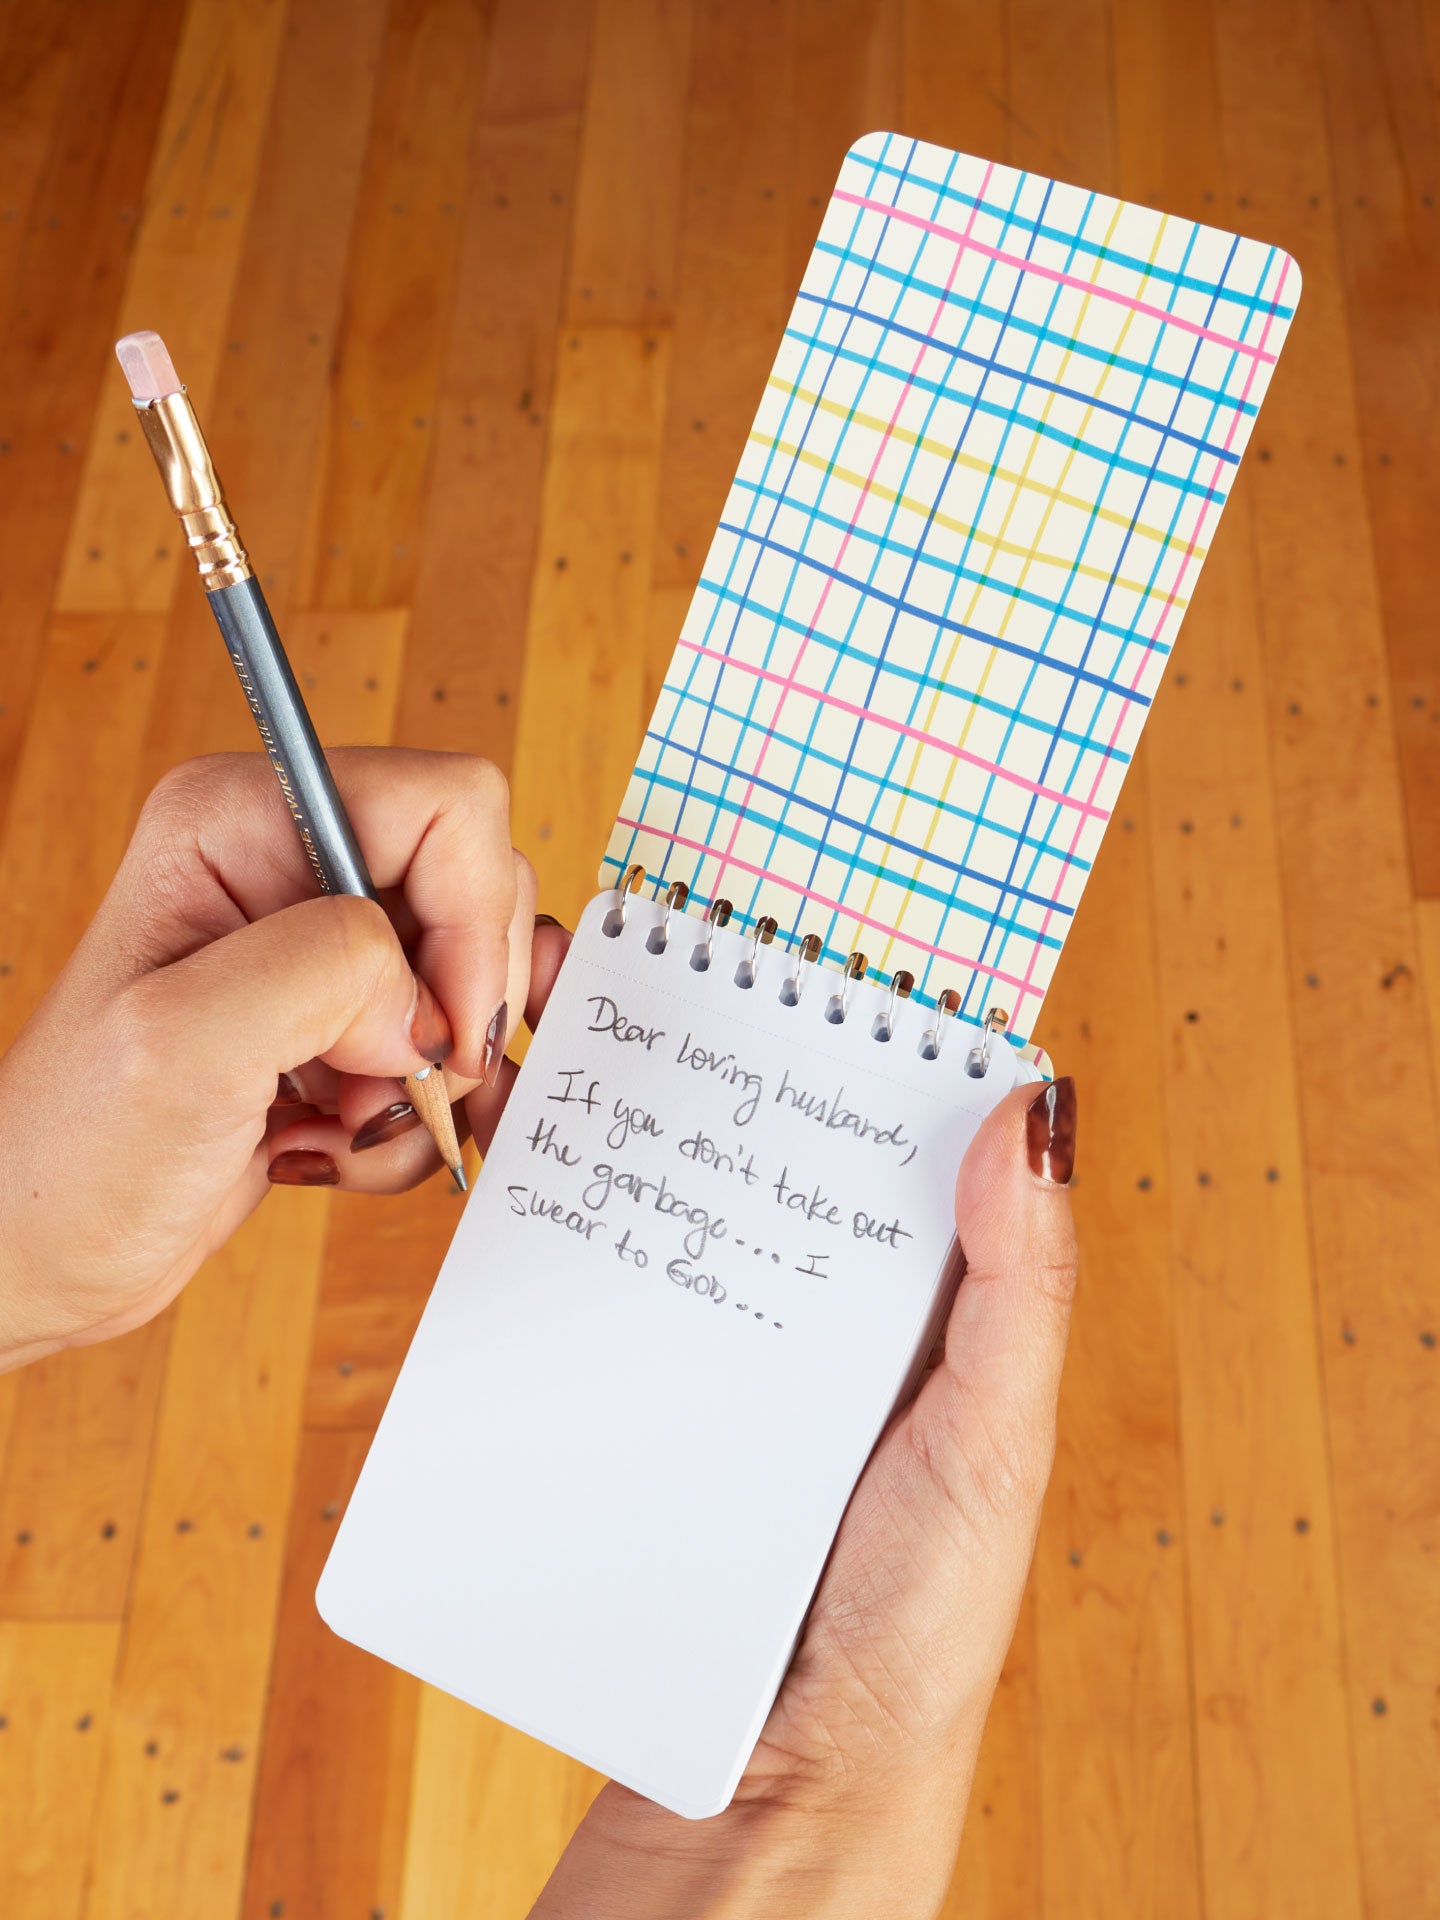 SSURE, TWICE THE SPEED
Dear loving husband,
If you don't take out
the garbage... I
swear to GOD...